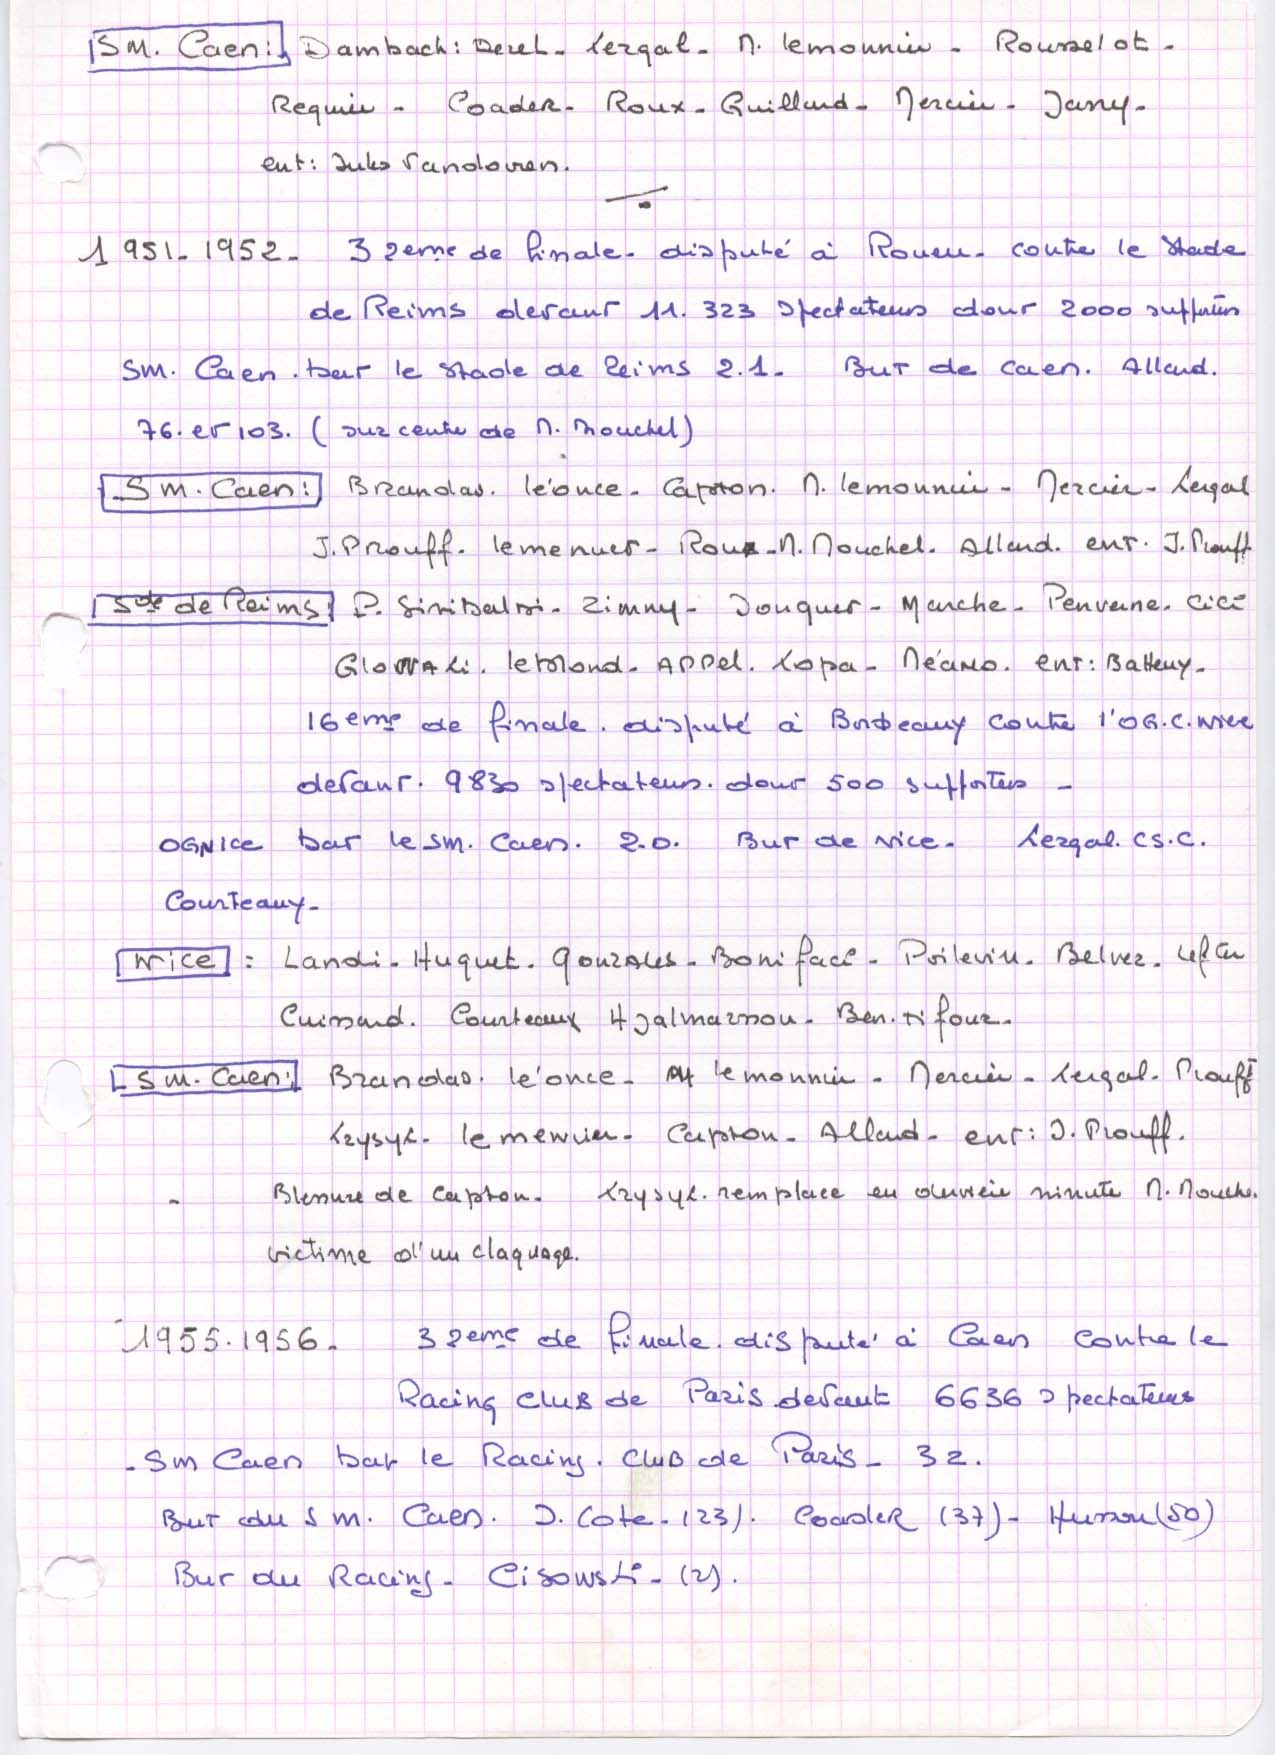 SM. Caen: Dambach: Deret - Kergal - M. Lemonnier - Rousselot -
Requier - Coader - Roux - Guilland - Mercier - Jany -
ent: Jules Vandooren.
1951-1952 - 32eme de finale - disputé à Rouen - contre le Stade
de Reims devant 11.323 spectateurs dont 2000 supporters
SM. Caen. bat le Stade de Reims 2.1. But de Caen. Alland.
76. et 103. (sur centre de M. Mouchel)
SM. Caen: Brandao. Léonce - Capron. M. Lemonnier - Mercier - Kergal
J. Prouff. Lemenuer - Roux - M. Mouchel. Alland. ent. J. Prouff
Sde de Reims P. Sinibaldi - Zimny - Jonquet - Marche - Penverne. Cicci
Glowacki. Leblond. APPel. Kopa - Méano. ent: Batteux -
16eme de finale. disputé à Bordeaux contre l'OG.C.Nice
devant. 9830 spectateurs. dont 500 supporters -
OGNice bat le SM. Caen. 2.0. But de Nice - Kergal. CS.C.
Courteaux -
Nice: Landi - Huguet. Gonzales - Boniface - Poitevin. Belver.
Cuissard. Courteaux Hjalmarsson. Ben. Tifour -
SM. Caen: Brandao. Léonce - M Lemonnier - Mercier - Kergal. Prouff
Krysyk - Lemenuier - Capron - Alland - ent: J. Prouff.
- Blessure de Capron. Krysyk. remplace en dernière minute M. Mouche.
victime d'un claquage.
1955.1956 - 32eme de finale. disputé à Caen contre le
Racing Club de Paris devant 6636 spectateurs
- SM Caen bat le Racing. Club de Paris - 32.
But du SM. Caen. D. Cote - (23). Coader (37) - Husson (50)
But du Racing - Cisowski - (2).